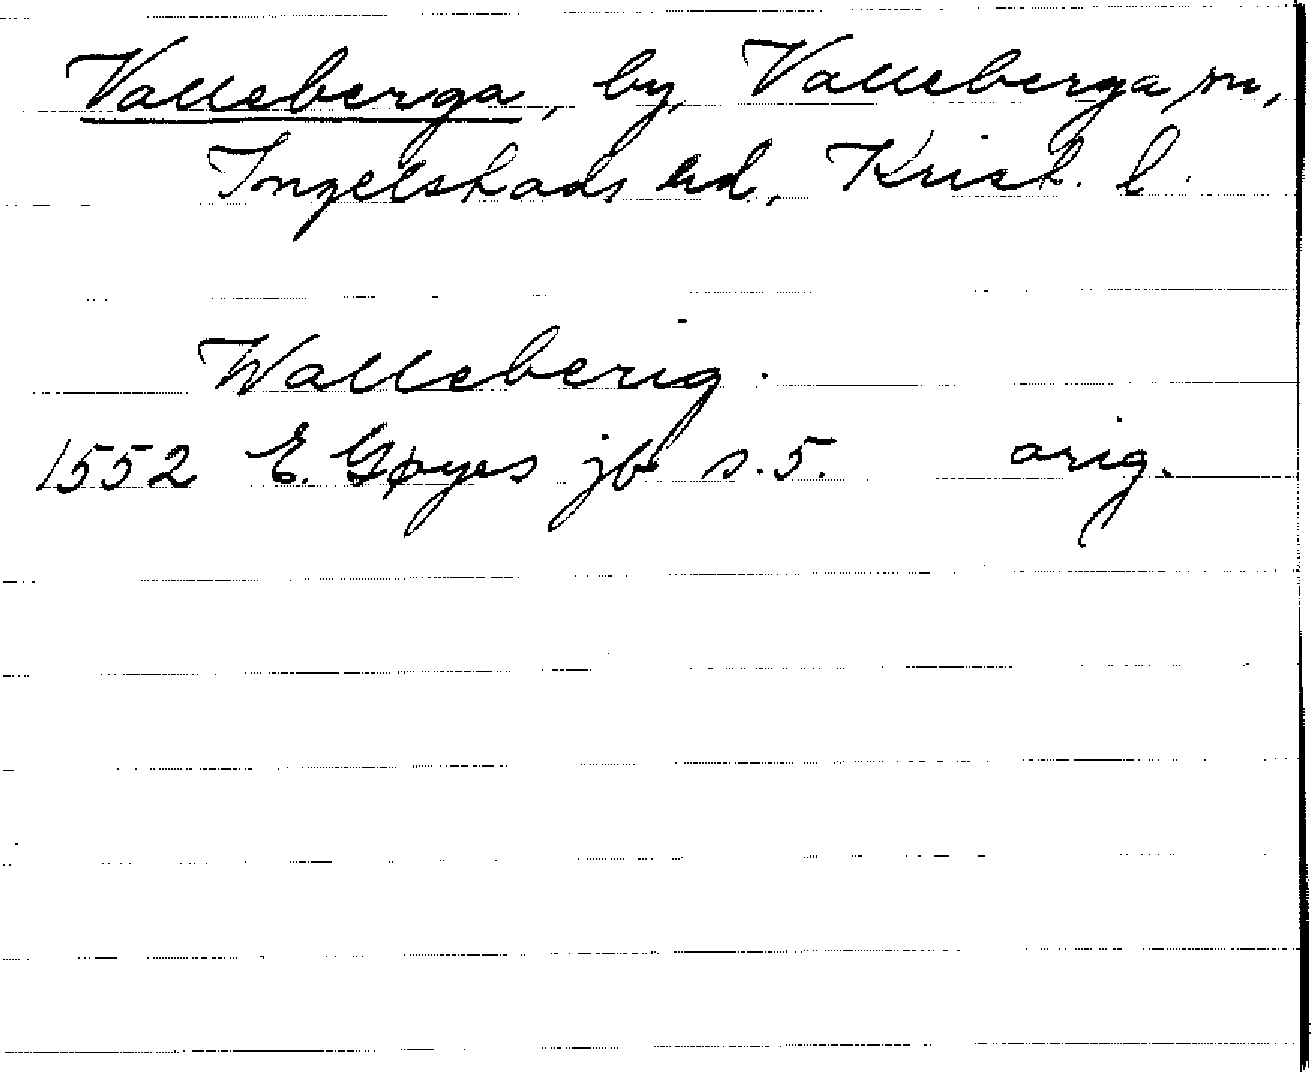 Valleberga, by, Valleberga sn,
Ingelstads hd, Krist. l.
Walleberig.
1552 E. Gøyes jb s. 5. orig.